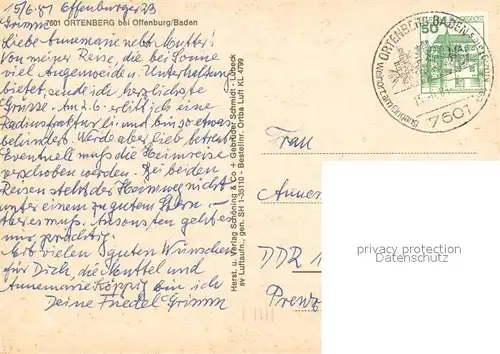 15/6.81 Offenburger 23
Grimm
7601 ORTENBERG bei Offenburg/Baden
Liebe Annemarie nebst Mutter!
Von meiner Reise, die bei Sonne
viel Augenweide u. Unterhaltung
bietet, sende ich herzlichste
Grüsse. Am 2.6. erlitt ich eine
Radiusfraktur li. und bin so etwas
behindert. Werde aber lieb betreut
Eventuell muß die Heimreise
verschoben werden. Bei beiden
Reisen steht der Heimweg nicht
unter einem guten Stern. –
Aber es muß. Ansonsten geht es
mir prächtig.
Mit vielen guten Wünschen
für Dich, die Muttel und
Annemarie Köppig bin ich
Deine Friedel Grimm
Herst. u. Verlag Schöning & Co + Gebrüder Schmidt - Lübeck
sv Luftaufn., gen. SH 1-35110 - Bestellnr. Ortba Luft KL 4799
ORTENBERG BADEN
Weinort am Eingang
7601
50
DEUTSCHE BUNDESPOST
Frau
DDR 1
Prenz
privacy protection
Datenschutz